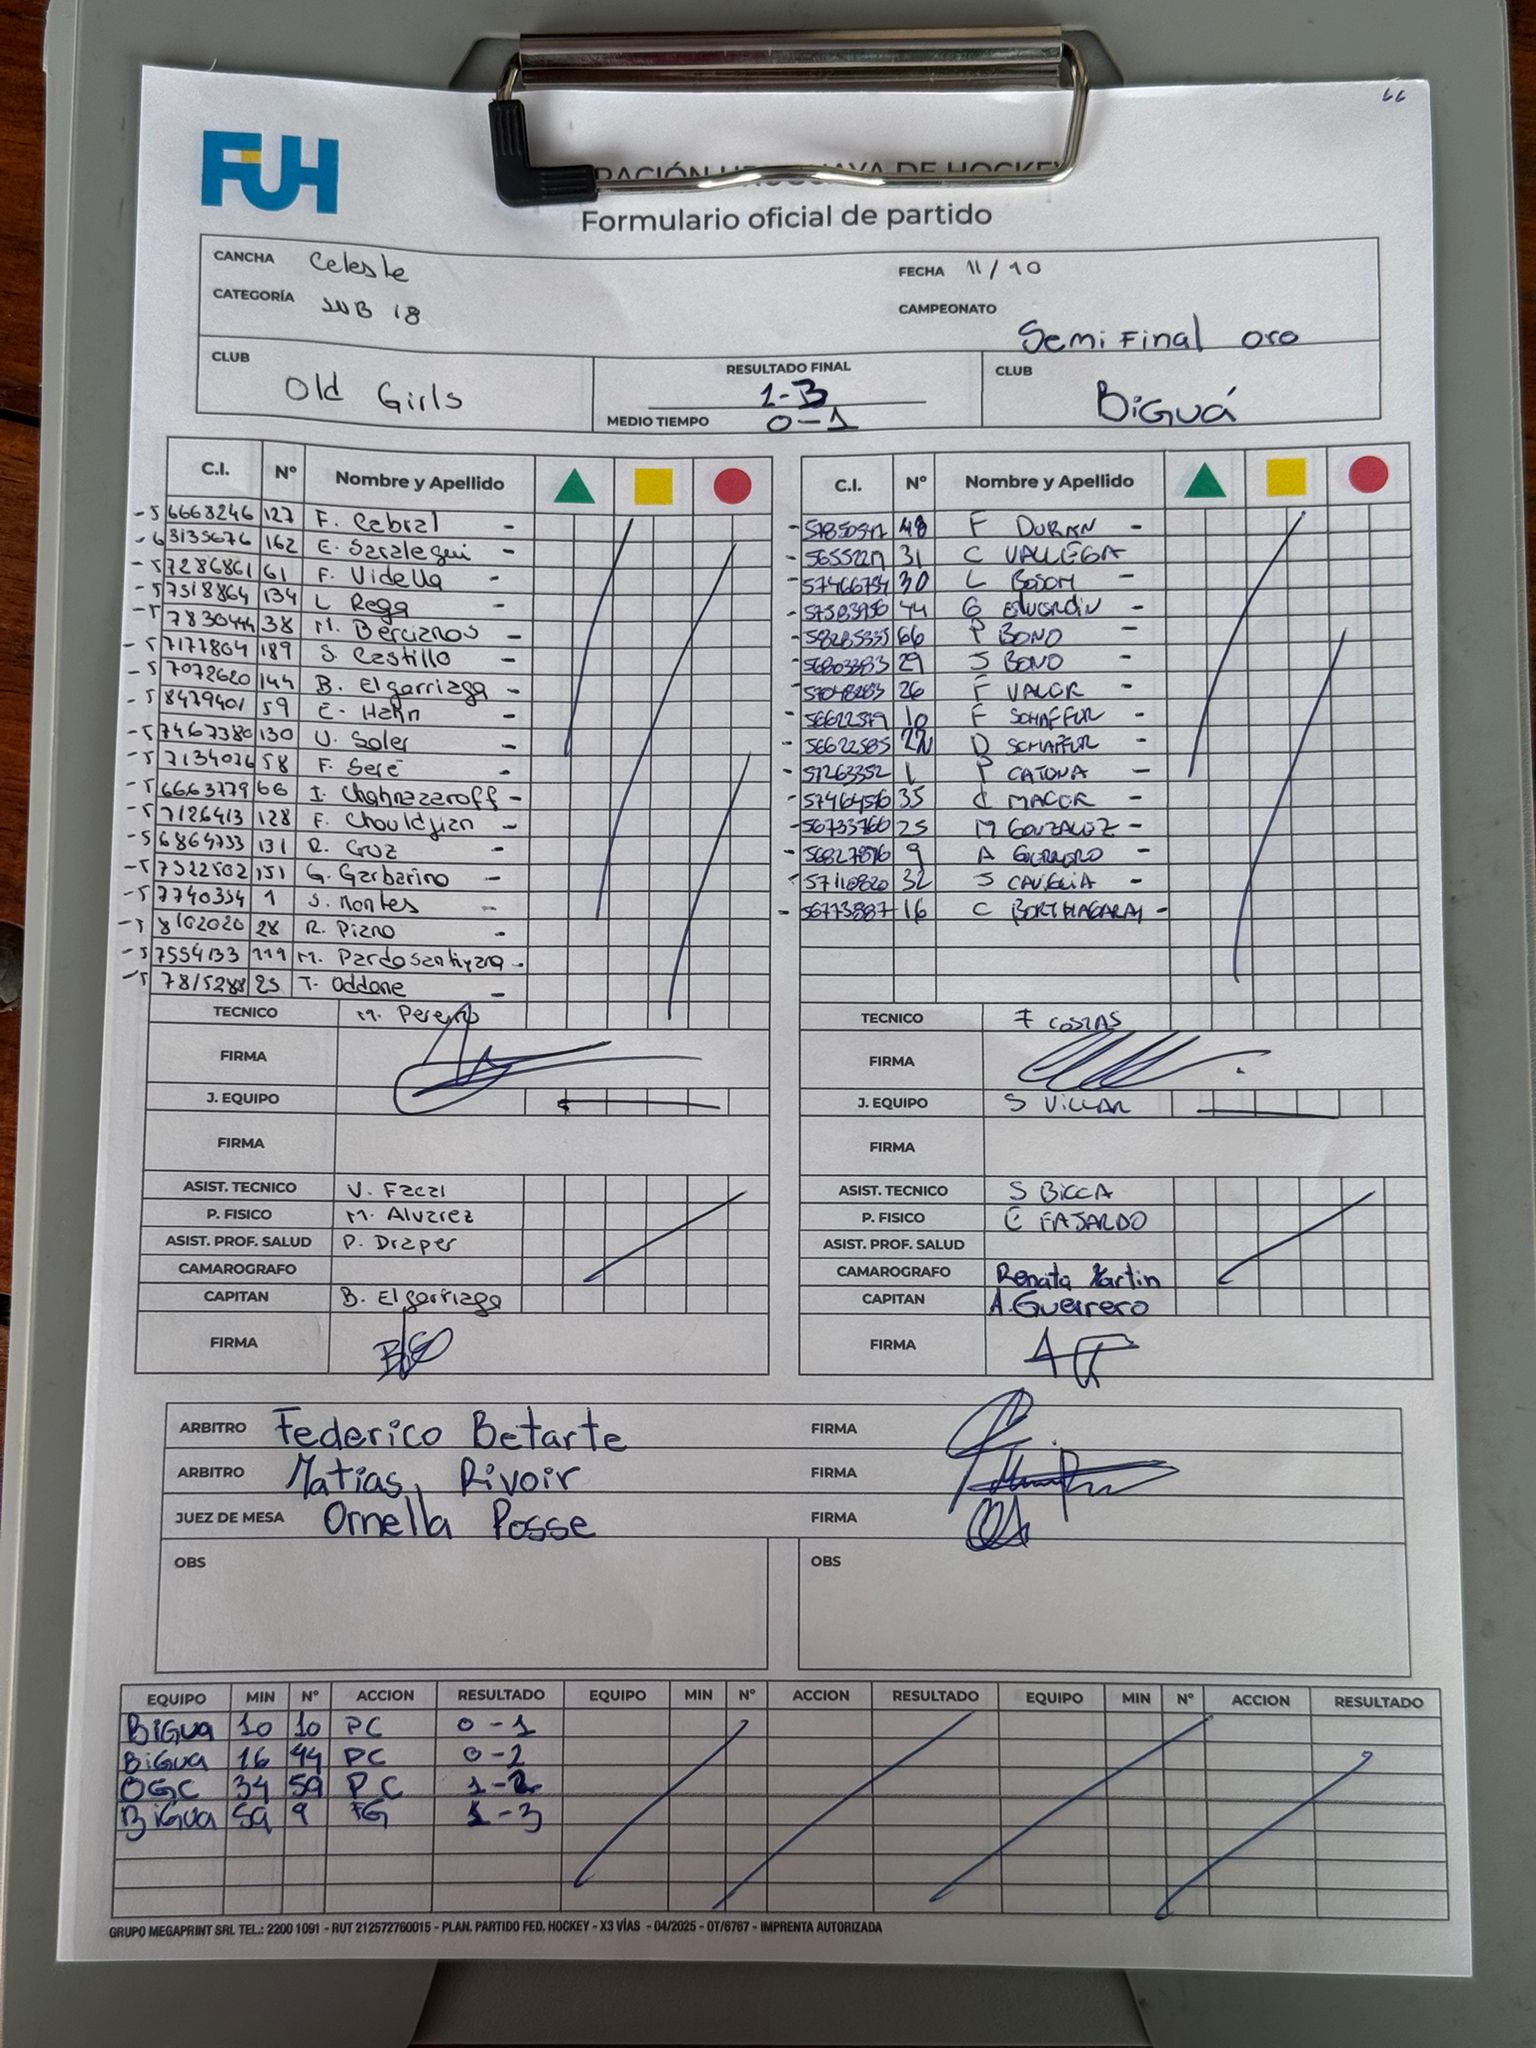 66
FUH
Formulario oficial de partido
CANCHA Celeste
FECHA 11/10
CATEGORÍA SUB 18
CAMPEONATO Semi Final oro
CLUB Old Girls
RESULTADO FINAL 1-3
MEDIO TIEMPO 0-1
CLUB BiGuá
C.I. Nº Nombre y Apellido
- 5 6668246 127 F. Cabral -
- 6 3135676 162 E. Saralegui -
- 5 7286861 61 F. Vidella -
- 5 7518864 134 L Rega -
- 5 7830444 38 M. Berciznos -
- 5 7177804 189 S. Castillo -
- 5 7072620 144 B. Elgarrizga -
- 5 8479401 59 E. Hahn -
- 5 7467380 130 U. Soler -
- 5 7134026 58 F. Seré -
- 5 6663779 66 I. Chahnazaroff -
- 5 7126413 128 F. Chouldjian -
- 5 6864733 131 R. Cruz -
- 5 7322502 151 G. Garbarino -
- 5 7740354 1 S. Montes -
- 5 8102020 28 R. Piano -
- 5 7554133 119 M. Pardo Santiyana -
- 5 7815288 25 T. Oddone -
TECNICO M. Pereyro
FIRMA
J. EQUIPO
FIRMA
ASIST. TECNICO V. Facal
P. FISICO M. Alvarez
ASIST. PROF. SALUD P. Draper
CAMAROGRAFO
CAPITAN B. Elgarrizga
FIRMA
C.I. Nº Nombre y Apellido
48 F DURAN -
31 C VALLEGA
- 57466734 30 L BOSCH -
44 G -
- 58285335 66 P BONO -
- 56803383 29 S BONO -
- 57048283 26 F -
- 56622579 10 F SCHAFFUR -
- 56622585 22 D SCHAFFUR -
- 57263352 1 P CATONA -
- 57464516 35 C MACCR -
- 56733766 25 M GONZALEZ -
- 56827876 9 A GUERRERO -
57110820 32 S CAVIGLIA -
- 56773887 16 C BORTHAGARAY -
TECNICO F COSTAS
FIRMA
J. EQUIPO S VILLAR
FIRMA
ASIST. TECNICO S BICCA
P. FISICO C FAJARDO
ASIST. PROF. SALUD
CAMAROGRAFO Renata Martin
CAPITAN A. Guerrero
FIRMA
ARBITRO Federico Betarte FIRMA
ARBITRO Matias Rivoir FIRMA
JUEZ DE MESA Ornella Posse FIRMA
OBS OBS
EQUIPO MIN Nº ACCION RESULTADO EQUIPO MIN Nº ACCION RESULTADO EQUIPO MIN Nº ACCION RESULTADO
BiGua 10 10 PC 0-1
BiGua 16 44 PC 0-2
OGC 34 59 PC 1-2
BiGua 59 9 FG 1-3
GRUPO MEGAPRINT SRL TEL.: 2200 1091 - RUT 212572760015 - PLAN. PARTIDO FED. HOCKEY - X3 VÍAS - 04/2025 - OT/6767 - IMPRENTA AUTORIZADA